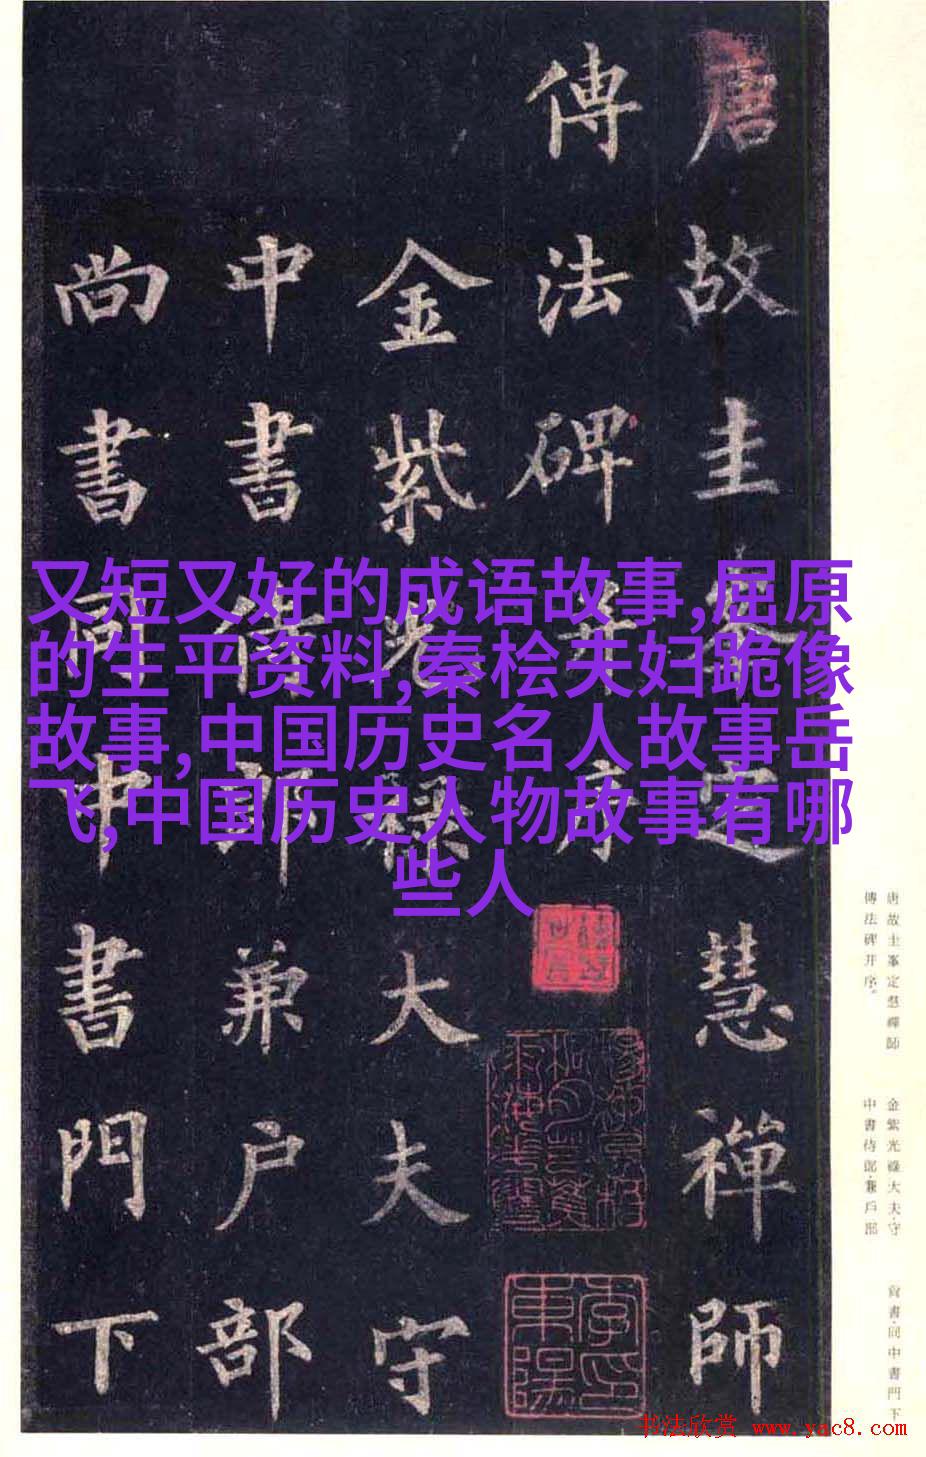 唐故圭峯定慧禪師
傳法碑并序
金紫光祿大夫守
中書侍郎兼户部
尚書同中書門下
又短又好的成语故事,屈原
的生平资料,秦桧夫妇跪像
故事,中国历史名人故事岳
飞,中国历史人物故事有哪
些人
李印
東陽
唐故圭峯定慧禪師
傳法碑并序。
金紫光祿大夫·守
中書侍郎·兼戶部
尚書·同中書門下
书法欣赏 www.yac8.com